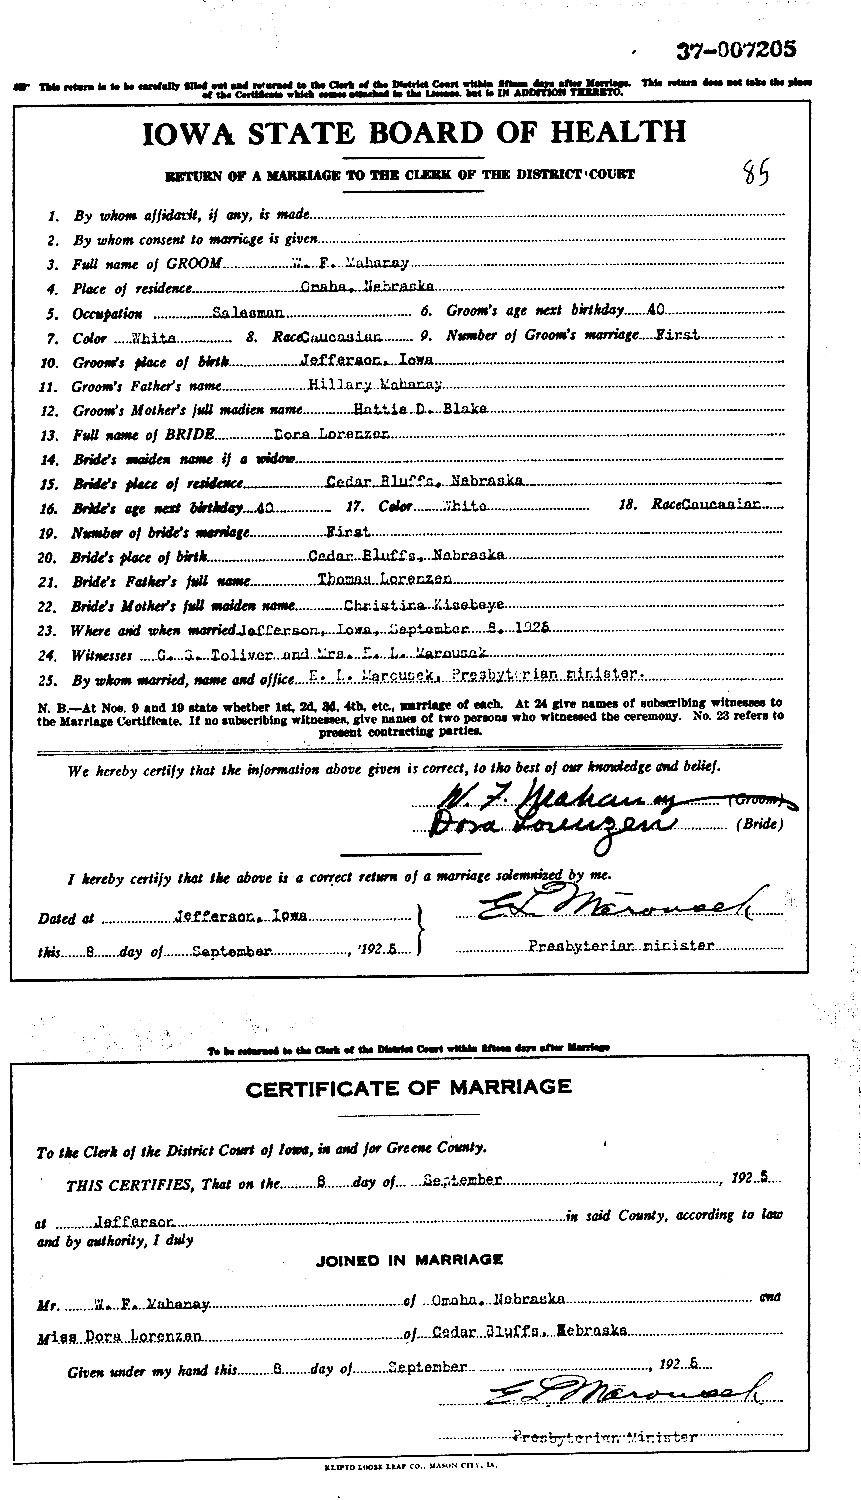 37-007205
This return is to be carefully filled out and returned to the Clerk of the District Court within fifteen days after Marriage. This return does not take the place
of the Certificate which comes attached to the License, but is IN ADDITION THERETO.
IOWA STATE BOARD OF HEALTH
RETURN OF A MARRIAGE TO THE CLERK OF THE DISTRICT COURT
85
1. By whom affidavit, if any, is made
2. By whom consent to marriage is given
3. Full name of GROOM W. F. Mahanay
4. Place of residence Omaha, Nebraska
5. Occupation Salesman 6. Groom's age next birthday 40
7. Color White 8. Race Caucasian 9. Number of Groom's marriage First
10. Groom's place of birth Jefferson, Iowa
11. Groom's Father's name Hillary Mahanay
12. Groom's Mother's full madien name Hattie D. Blake
13. Full name of BRIDE Dora Lorenzen
14. Bride's maiden name if a widow
15. Bride's place of residence Cedar Bluffs, Nebraska
16. Bride's age next birthday 40 17. Color White 18. Race Caucasian
19. Number of bride's marriage First
20. Bride's place of birth Cedar Bluffs, Nebraska
21. Bride's Father's full name Thomas Lorenzen
22. Bride's Mother's full maiden name Christina
23. Where and when married Jefferson, Iowa, September 8, 1925
24. Witnesses G. S. Toliver and Mrs. E. L. Marousek
25. By whom married, name and office E. L. Marousek, Presbyterian minister.
N. B.—At Nos. 9 and 19 state whether 1st, 2d, 3d, 4th, etc., marriage of each. At 24 give names of subscribing witnesses to
the Marriage Certificate. If no subscribing witnesses, give names of two persons who witnessed the ceremony. No. 23 refers to
present contracting parties.
We hereby certify that the information above given is correct, to the best of our knowledge and belief.
W. F. Mahanay (Groom)
Dora Lorenzen (Bride)
I hereby certify that the above is a correct return of a marriage solemnized by me.
Dated at Jefferson, Iowa E L Marousek
this 8 day of September, 1925 Presbyterian minister
To be returned to the Clerk of the District Court within fifteen days after Marriage
CERTIFICATE OF MARRIAGE
To the Clerk of the District Court of Iowa, in and for Greene County.
THIS CERTIFIES, That on the 8 day of September, 1925
at Jefferson in said County, according to law
and by authority, I duly
JOINED IN MARRIAGE
Mr. W. F. Mahanay of Omaha, Nebraska and
Miss Dora Lorenzen of Cedar Bluffs, Nebraska
Given under my hand this 8 day of September, 1925
E L Marousek
Presbyterian Minister
KLIPTO LOOSE LEAF CO., MASON CITY, IA.